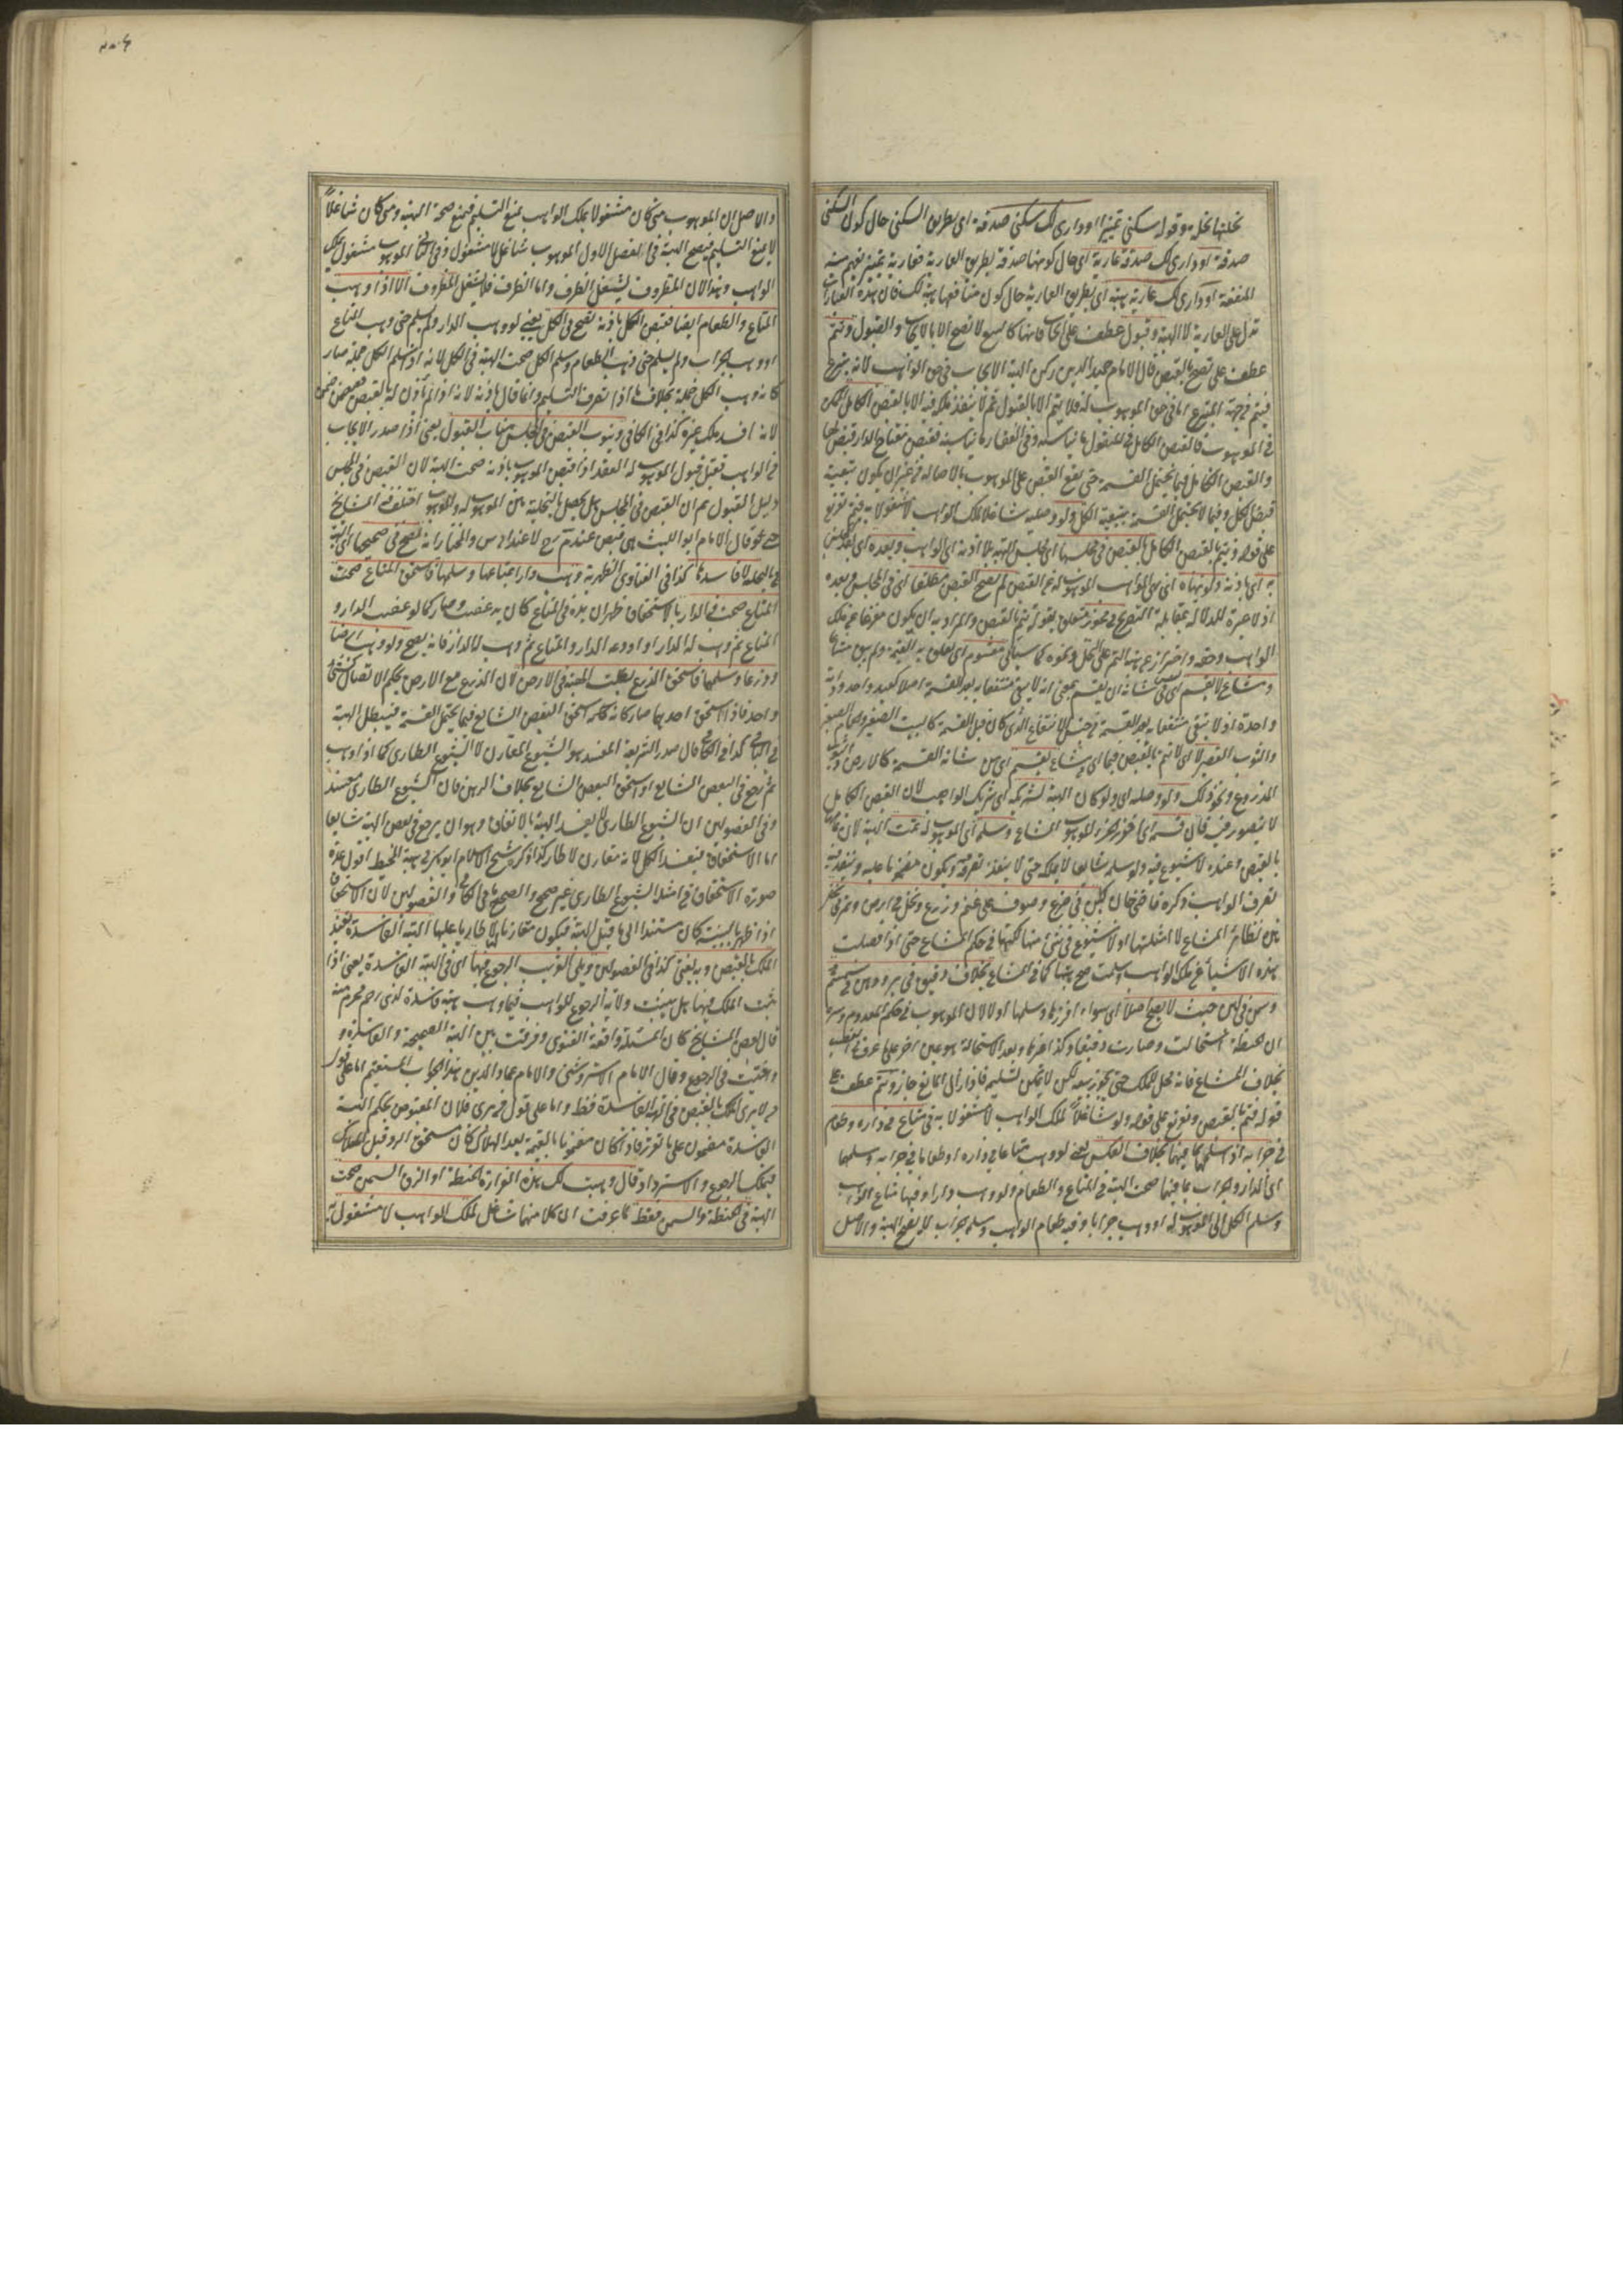 نحلتها نحلة وقوله سكنى تمييز او داري لك سكنى صدقة اي بطريق السكنى حال كون السكنى
صدقة او داري لك صدقة عارية اي حال كونها صدقة بطريق العارية فعارية تمييز يفهم منه
المنفعة او داري لك عارية هبة اي بطريق العارية حال كون منافعها هبة لك فان هذه العبارات
تدل على العارية لا الهبة وقبول عطف على ايجاب فانها كالبيع لا تصح الا بالايجاب والقبول وتتم
عطف على تصح بالقبض قال الامام حميد الدين ركن الهبة الايجاب في حق الواهب لانه تبرع
فيتم من جهة المتبرع اما في حق الموهوب له فلا يتم الا بالقبول ثم لا ينفذ ملكه فيه الا بالقبض الكامل الممكن
في الموهوب فالقبض الكامل في المنقول ما يناسبه وفي العقار ما يناسبه فقبض مفتاح الدار قبض لها
والقبض الكامل فيما يحتمل القسمة حتى يقع القبض على الموهوب بالاصالة من غير ان يكون بتبعية
قبض الكل وفيما لا يحتمل القسمة بتبعية الكل ولو وصلية شاغلا لملك الواهب لا مشغولا به فيتم تفريع
على قوله وتتم بالقبض الكامل بالقبض في مجلسها اي مجلس الهبة بلا اذنه اي الواهب وبعده اي بعد المجلس
به اي باذنه ولو نهاه اي نهى الواهب الموهوب له عن القبض لم يصح القبض مطلقا اي في المجلس وبعده
اذ لا عبرة للدلالة بمقابلة التصريح في محوز متعلق بقوله تتم بالقبض والمراد به ان يكون مفرغا عن ملك
الواهب وحقه واحترز عن هبة التمر على النخل ونحوه كما سيأتي مقسوم اي تعلق به القسمة ولم يبق مشاعا
ومشاع لا يقسم اي ليس من شأنه ان يقسم بمعنى انه لا يبقى منتفعا به بعد القسمة اصلا كعبد واحد ودابة
واحدة او لا يبقى منتفعا به بعد القسمة من جنس الانتفاع الذي كان قبل القسمة كالبيت الصغير والحمام الصغير
والثوب القصير لا اي لا تتم بالقبض فيما اي في مشاع يقسم اي من شأنه القسمة كالارض والثوب
المذروع ونحو ذلك ولو وصلية اي ولو كان الهبة لشريكه اي شريك الواهب لان القبض الكامل
لا يتصور فيه فان قسمه اي افرز الجزء الموهوب المشاع وسلمه اي الموهوب له تمت الهبة لان تمامها
بالقبض وعنده لا شيوع فيه ولو سلمه شايعا لا يملكه حتى لا ينفذ تصرفه فيه ويكون مضمونا عليه وينفذ فيه
تصرف الواهب ذكره قاضي خان كلبن في ضرع وصوف على غنم وزرع ونخل في ارض وتمر في نخل
هذه نظائر المشاع لا امثلتها اذ لا شيوع في شيء منها لكنها في حكم المشاع حتى اذا فصلت
هذه الاشياء عن ملك الواهب وسلمت صح هبتها كما في المشاع بخلاف دقيق في بر ودهن في سمسم
وسمن في لبن حيث لا يصح اصلا اي سواء افرزها وسلمها او لا لان الموهوب في حكم المعدوم وسره
ان الحنطة استحالت وصارت دقيقا وكذا غيرها وبعد الاستحالة هو عين اخر على ما عرف في الغصب
بخلاف المشاع فانه محل للملك حتى يجوز بيعه لكن لا يمكن تسليمه فاذا زال المانع جاز وتتم عطف على
قوله فتتم بالقبض وتفريع على قوله ولو شاغلا لملك الواهب لا مشغولا به في متاع في داره وطعام
في جرابه اذا سلمها بما فيها بخلاف العكس يعني لو وهب متاعا في داره او طعاما في جرابه وسلمها
اي الدار والجراب بما فيها صحت الهبة في المتاع والطعام ولو وهب دارا وفيها متاع الواهب
وسلم الكل الى الموهوب له او وهب جرابا وفيه طعام الواهب وسلم الجراب لا يصح الهبة والاصل
والاصل ان الموهوب متى كان مشغولا بملك الواهب يمنع التسليم فيمنع صحة الهبة ومتى كان شاغلا
لا يمنع التسليم فيصح الهبة ففي الفصل الاول الموهوب شاغل لا مشغول وفي الثاني الموهوب مشغول بملك
الواهب وهذا لان المظروف يشغل الظرف واما الظرف فلا يشغل المظروف الا اذا وهب
المتاع والطعام ايضا فقبض الكل باذنه تصح في الكل يعني لو وهب الدار ولم يسلم حتى وهب المتاع
او وهب الجراب ولم يسلم حتى وهب الطعام وسلم الكل صحت الهبة في الكل لانه اذا سلم الكل جملة صار
كانه وهب الكل جملة بخلاف ما اذا تفرق التسليم وانما قال باذنه لانه اذا لم يأذن له بالقبض فقبض ضمن
لانه افسد ملك غيره كذا في الكافي وينوب القبض في المجلس مناب القبول يعني اذا صدر الايجاب
من الواهب فقبل قبول الموهوب له العقد اذا قبض الموهوب باذنه صحت الهبة لان القبض في المجلس
دليل القبول ثم ان القبض في المجلس هل يحصل بالتخلية بين الموهوب له والموهوب اختلف فيه المشايخ
حتى قال الامام ابو الليث هي قبض عند محمد رح لا عند ابي يوسف والمختار انه تصح في صحيحها اي الهبة
بالتخلية لا فاسدها كذا في الفتاوى الظهيرية وهب دارا بمتاعها وسلمها فاستحق المتاع صحت
المتاع صحت في الدار بالاستحقاق ظهر ان يده في المتاع كان يد غصب وصار كما لو غصب الدار و
المتاع ثم وهب له الدار او اودعه الدار والمتاع ثم وهب له الدار فانه يصح ولو وهب ارضا
وزرعا وسلمها فاستحق الزرع بطلت الهبة في الارض لان الزرع مع الارض بحكم الاتصال كشيء
واحد فاذا استحق احدهما صار كانه استحق البعض الشايع فيما يحتمل القسمة فيبطل الهبة
في الباقي كذا في الكافي قال صدر الشريعة المفسد هو الشيوع المقارن لا الشيوع الطاري كما اذا وهب
ثم رجع في البعض الشايع او استحق البعض الشايع بخلاف الرهن فان الشيوع الطاري مفسد
وفي الفصولين ان الشيوع الطاري لا يفسد الهبة بالاتفاق وهو ان يرجع في بعض الهبة شايعا
اما الاستحقاق فيفسد الكل لانه مقارن لا طار كذا ذكره شيخ الاسلام ابو بكر في هبة المحيط اقول عده
صورة الاستحقاق في امثلة الشيوع الطاري غير صحيح والصحيح ما في الكافي والفصولين لان الاستحقاق
اذا ظهر بالبينة كان مستندا الى ما قبل الهبة فيكون مقارنا لها لا طاريا عليها الهبة الفاسدة تفيد
الملك بالقبض وبه يفتى كذا في الفصولين ويلي القريب الرجوع فيها اي في الهبة الفاسدة يعني اذا
ثبت الملك فيها هل يثبت ولاية الرجوع للواهب فيما وهب هبة فاسدة لذي رحم محرم منه
قال بعض المشايخ كان المسئلة واقعة الفتوى وفرقت بين الهبة الصحيحة والفاسدة و
وافتيت في الرجوع وقال الامام الاستروشني والامام عماد الدين هذا الجواب المستقيم اما على قول
من لا يرى الملك بالقبض في الهبة الفاسدة فظ واما على قول من يرى فلان المقبوض بحكم الهبة
الفاسدة مضمون على ما تقرر فاذا كان مضمونا بالقيمة بعد الهلاك كان مستحق الرد قبل الهلاك
فيملك الرجوع والاسترداد وقال وهبت لك هذه الغرارة الحنطة او الزق السمن صحت
الهبة في الحنطة والسمن فقط لما عرفت ان كلا منهما شاغل لملك الواهب لا مشغول به